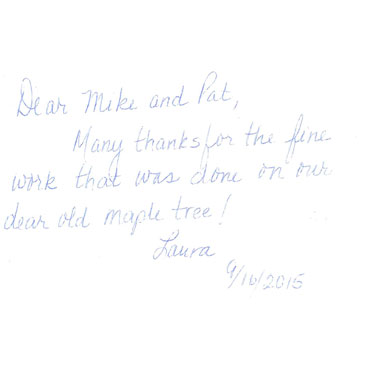 Dear Mike and Pat,
Many thanks for the fine
work that was done on our
dear old maple tree!
Laura
9/16/2015